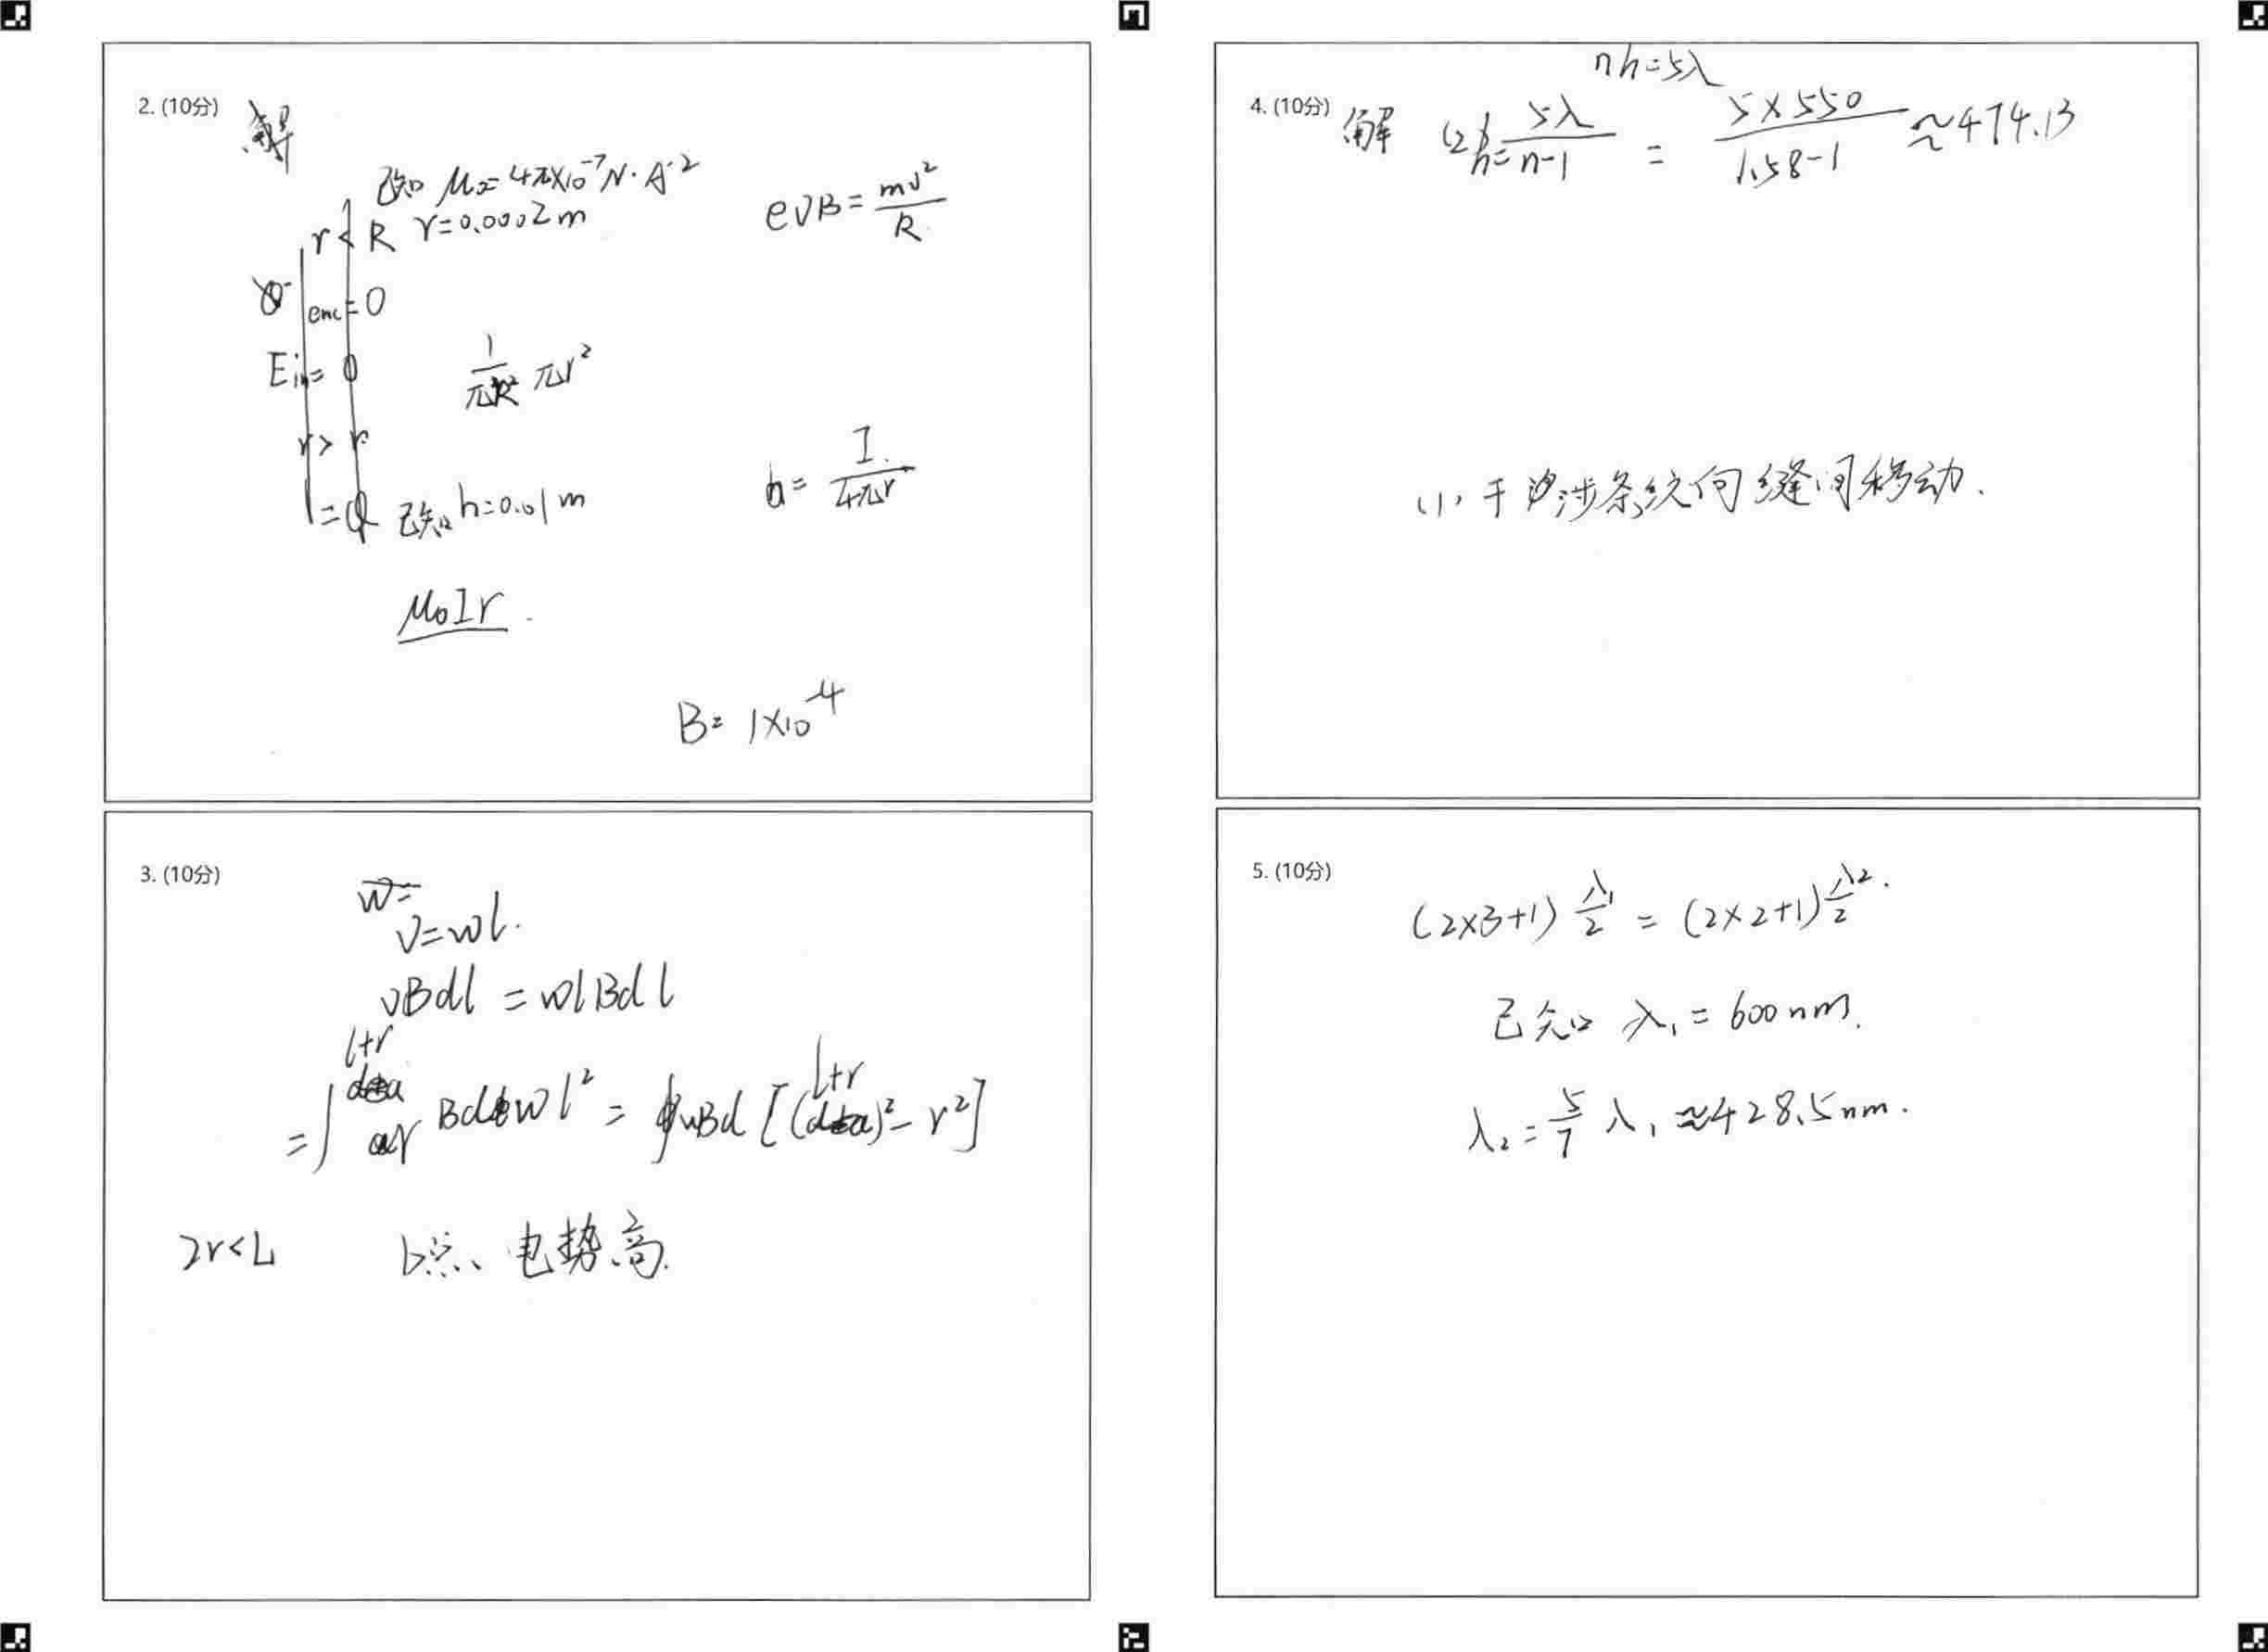 2. (10分)
解
已知 μ₀=4π×10⁻⁷N·A⁻²
r<R r=0.0002m
evB=mv²/R
enc=0
Ein=0
1/πR² πr²
r>r
=0 已知h=0.01m
h=I/4πr
μ₀Ir
B=1×10⁻⁴
3. (10分)
w=
v=wl.
vBdl=wlBdl
l+r
r
[(l+r)²-r²]
2r<L b点、电势高.
nh=5λ
4. (10分) 解 (2) h=5λ/n-1 = 5×550/1.58-1 ≈474.13
(1)、干涉条纹向缝间移动.
5. (10分)
(2×3+1)λ₁/2=(2×2+1)λ₂/2.
已知 λ₁=600nm.
λ₂=5/7λ₁≈428.5nm.